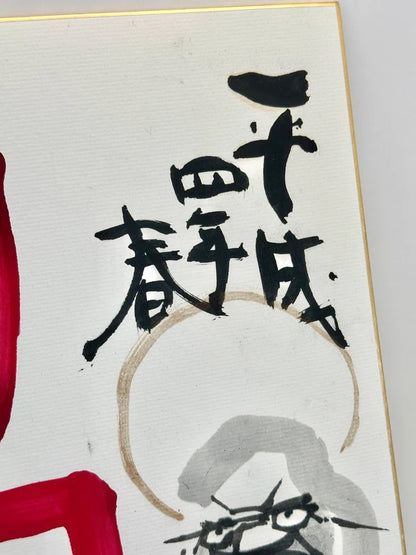 平成
四年
春